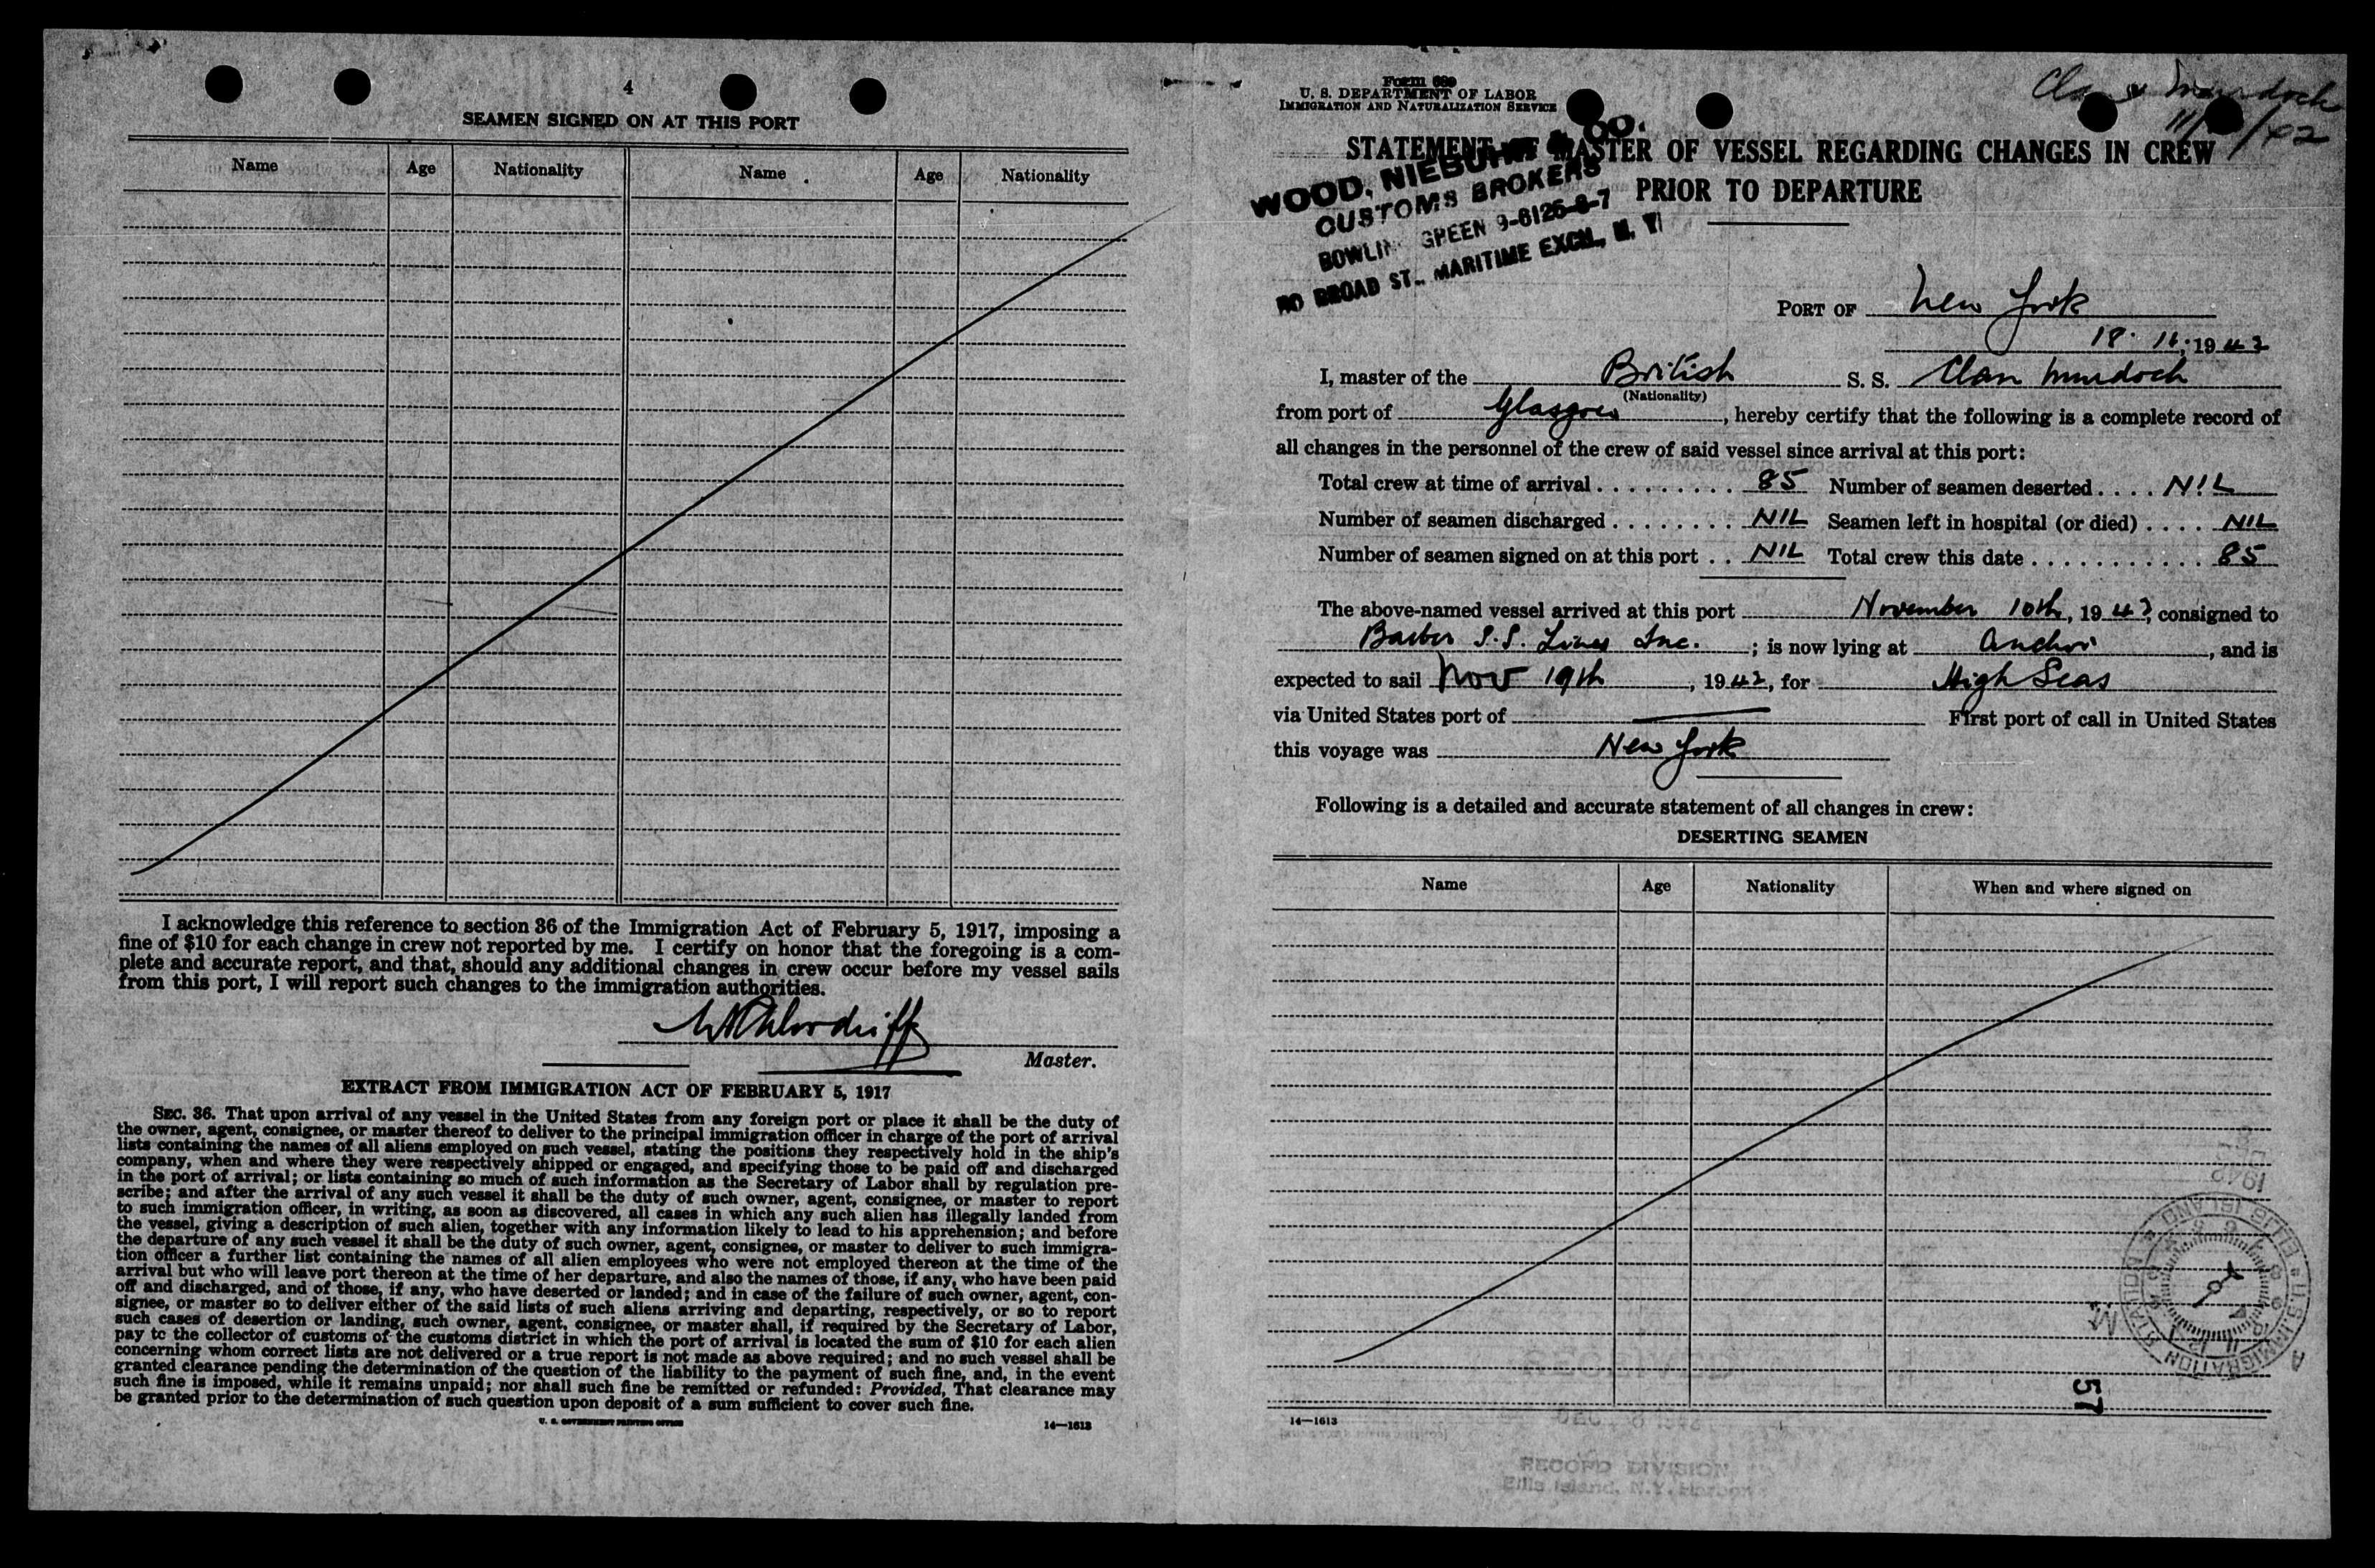 4
SEAMEN SIGNED ON AT THIS PORT
Name Age Nationality Name Age Nationality
I acknowledge this reference to section 36 of the Immigration Act of February 5, 1917, imposing a
fine of $10 for each change in crew not reported by me. I certify on honor that the foregoing is a com-
plete and accurate report, and that, should any additional changes in crew occur before my vessel sails
from this port, I will report such changes to the immigration authorities.
Master.
EXTRACT FROM IMMIGRATION ACT OF FEBRUARY 5, 1917
SEC. 36. That upon arrival of any vessel in the United States from any foreign port or place it shall be the duty of
the owner, agent, consignee, or master thereof to deliver to the principal immigration officer in charge of the port of arrival
lists containing the names of all aliens employed on such vessel, stating the positions they respectively hold in the ship's
company, when and where they were respectively shipped or engaged, and specifying those to be paid off and discharged
in the port of arrival; or lists containing so much of such information as the Secretary of Labor shall by regulation pre-
scribe; and after the arrival of any such vessel it shall be the duty of such owner, agent, consignee, or master to report
to such immigration officer, in writing, as soon as discovered, all cases in which any such alien has illegally landed from
the vessel, giving a description of such alien, together with any information likely to lead to his apprehension; and before
the departure of any such vessel it shall be the duty of such owner, agent, consignee, or master to deliver to such immigra-
tion officer a further list containing the names of all alien employees who were not employed thereon at the time of the
arrival but who will leave port thereon at the time of her departure, and also the names of those, if any, who have been paid
off and discharged, and of those, if any, who have deserted or landed; and in case of the failure of such owner, agent, con-
signee, or master so to deliver either of the said lists of such aliens arriving and departing, respectively, or so to report
such cases of desertion or landing, such owner, agent, consignee, or master shall, if required by the Secretary of Labor,
pay to the collector of customs of the customs district in which the port of arrival is located the sum of $10 for each alien
concerning whom correct lists are not delivered or a true report is not made as above required; and no such vessel shall be
granted clearance pending the determination of the question of the liability to the payment of such fine, and, in the event
such fine is imposed, while it remains unpaid; nor shall such fine be remitted or refunded: Provided, That clearance may
be granted prior to the determination of such question upon deposit of a sum sufficient to cover such fine.
U. S. GOVERNMENT PRINTING OFFICE 14—1613
Form 689
U. S. DEPARTMENT OF LABOR
IMMIGRATION AND NATURALIZATION SERVICE
Clan Murdoch
STATEMENT OF MASTER OF VESSEL REGARDING CHANGES IN CREW
PRIOR TO DEPARTURE
WOOD, NIEBUHR & CO.
CUSTOMS BROKERS
BOWLING GREEN 9-6125-6-7
BROAD ST., MARITIME EXCH., N. Y.
PORT OF New York
18. 11, 1942
I, master of the British S. S. Clan Murdoch
(Nationality)
from port of Glasgow, hereby certify that the following is a complete record of
all changes in the personnel of the crew of said vessel since arrival at this port:
Total crew at time of arrival . . . . . . . . . 85 Number of seamen deserted . . . . NIL
Number of seamen discharged . . . . . . . . NIL Seamen left in hospital (or died) . . . . NIL
Number of seamen signed on at this port . . NIL Total crew this date . . . . . . . . . . . 85
The above-named vessel arrived at this port November 10th, 1942, consigned to
Barber S.S. Lines Inc. ; is now lying at Anchor, and is
expected to sail Nov 19th, 1942, for High Seas
via United States port of — First port of call in United States
this voyage was New York
Following is a detailed and accurate statement of all changes in crew:
DESERTING SEAMEN
Name Age Nationality When and where signed on
57
14—1613
RECORD DIVISION
Ellis Island, N.Y. Harbor